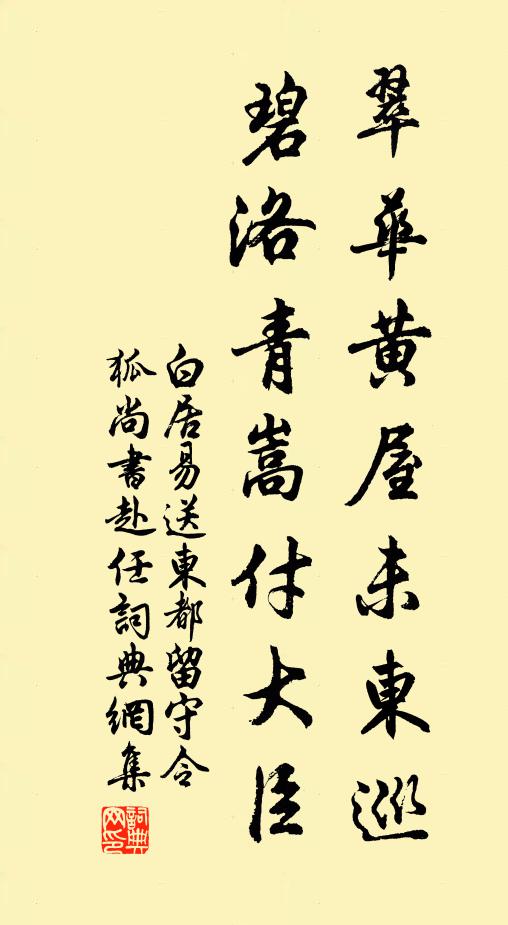 翠華黃屋未東巡
碧洛青嵩付大臣
白居易送東都留守令
狐尚書赴任詞典網集
詞典
网印